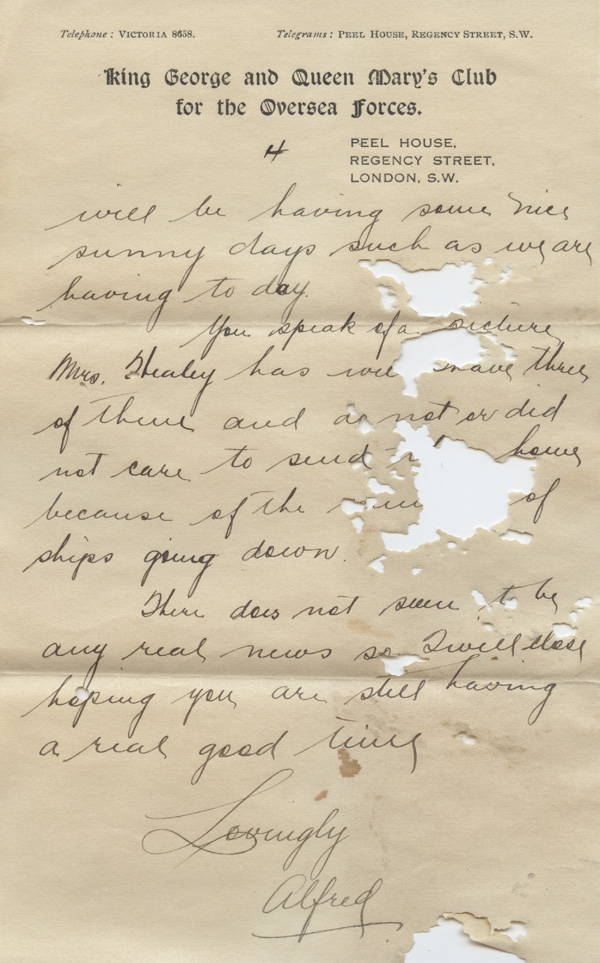 Telephone: VICTORIA 8658. Telegrams: PEEL HOUSE, REGENCY STREET, S.W.
King George and Queen Mary's Club
for the Oversea Forces.
4
PEEL HOUSE,
REGENCY STREET,
LONDON, S.W.
will be having some nice
sunny days such as we are
having to day.
You speak of a picture
Mrs. Healey has well have three
of them and not or did
not care to send home
because of the of
ships going down.
There does not seem to be
any real news so I will close
hoping you are still having
a real good time
Lovingly
Alfred